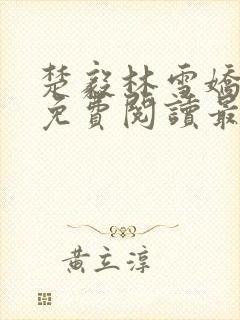 楚毅林雪嬌
免費閱讀最
黃立淳